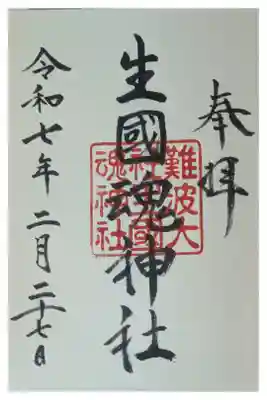 奉拝
生國魂神社
難波大
社生國
魂神社
令和七年二月二十七日